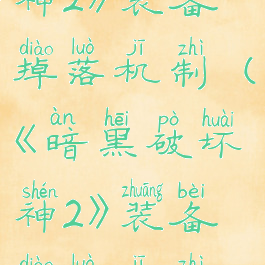 神2》装备
diào luò jī zhì
掉落机制（
àn hēi pò huài
《暗黑破坏
shén zhuāng bèi
神2》装备
diào luò jī zhì